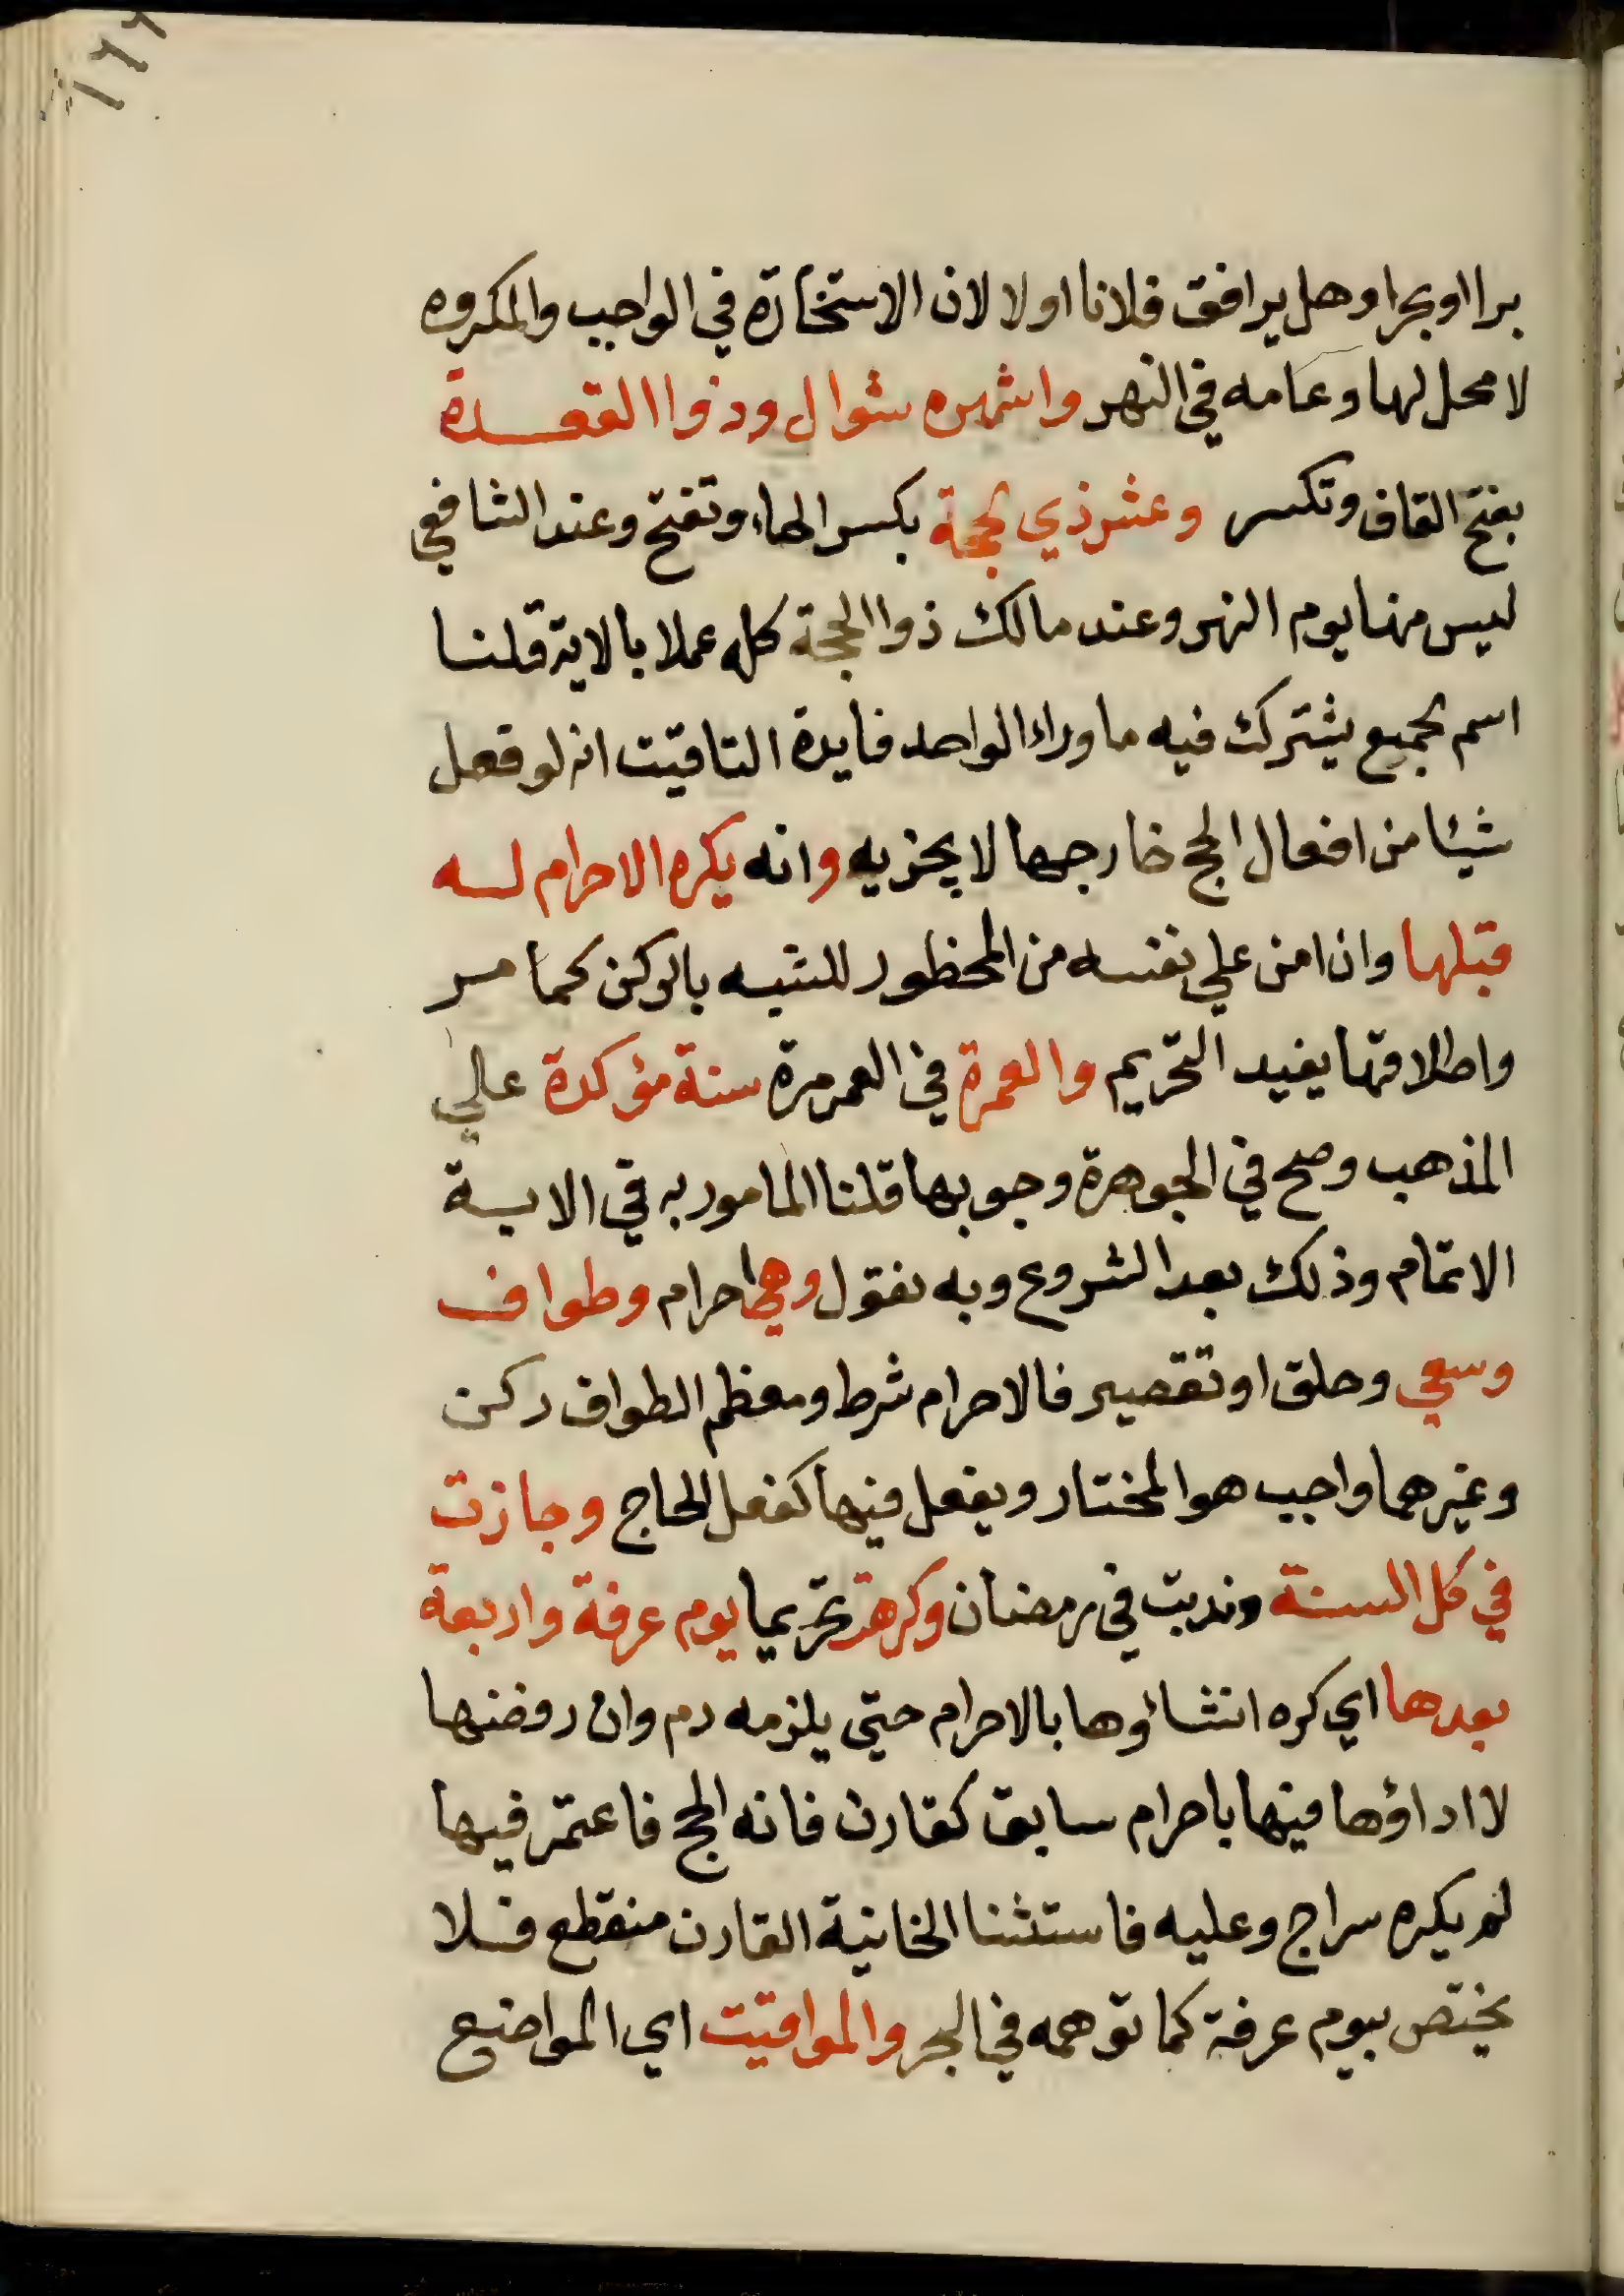 برا او بحرا وهل يرافق فلانا او لا لان الاستخارة في الواجب والمكروه
لا محل لها وعامه في النهر واشهره شوال وذوا القعدة
بفتح القاف وتكسر وعشر ذي لحجة بكسر الحاء وتفتح وعند الشافعي
ليس منها يوم النحر وعند مالك ذوا الحجة كله عملا بالاية قلنا
اسم لجميع يشترك فيه ما وراء الواحد فايدة التاقيت انه لو فعل
شيئا من افعال الحج خارجها لا يجزيه وانه يكره الاحرام له
قبلها وان امن علي نفسه من المحظور للشبه بالركن كما مر
واطلاقها يفيد التحريم والعمرة في العمر مرة سنة مؤكدة علي
المذهب وصح في الجوهرة وجوبها قلنا المامور به في الاية
الاتمام وذلك بعد الشروع وبه نقول وهي احرام وطواف
وسعي وحلق او تقصير فالاحرام شرط ومعظم الطواف ركن
وغيرهما واجب هو المختار ويفعل فيها كفعل الحاج وجازت
في كل السنة وندبت في رمضان وكرهت تحريما يوم عرفة واربعة
بعدها اي كره انشاؤها بالاحرام حتي يلزمه دم وان رفضها
لا اداؤها فيها باحرام سابق كقارن فاته الحج فاعتمر فيها
لم يكره سراج وعليه فاستثنا الخانية القارن منقطع فلا
يختص بيوم عرفة كما توهمه في البحر والمواقيت اي المواضع